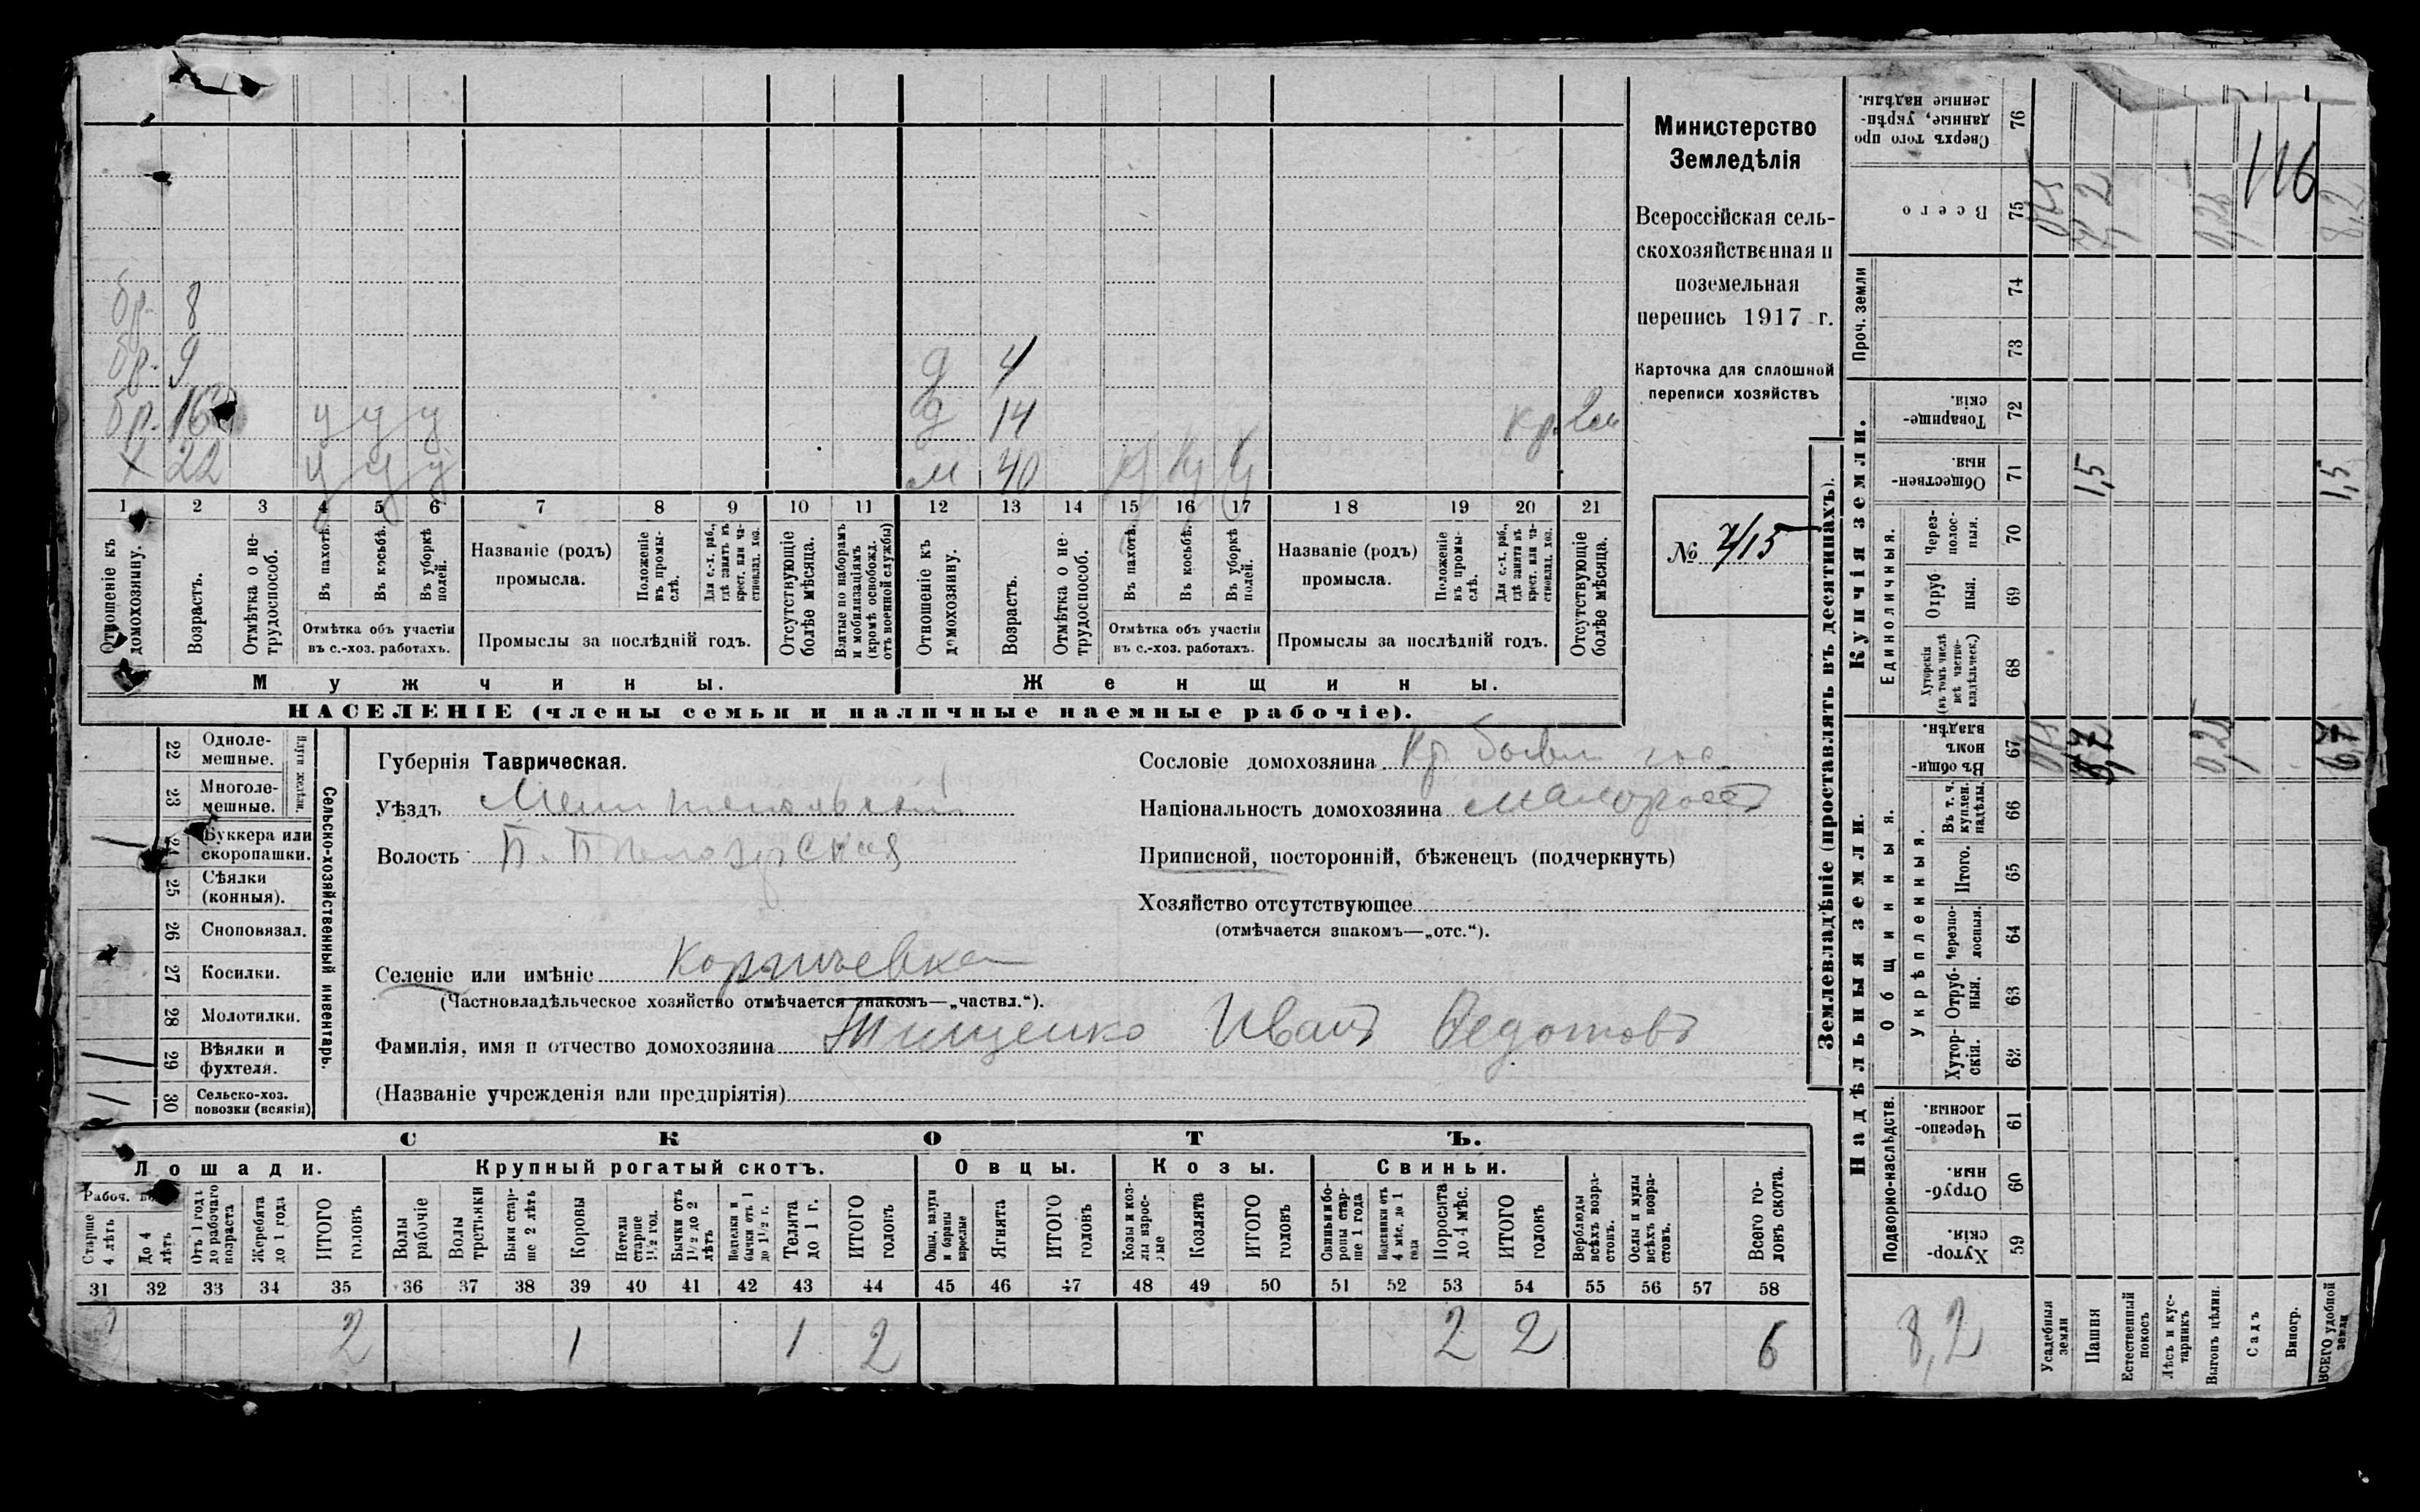 бр. 8
бр. 9
бр. 16 у у у
х 22 у у у
д 4
д 14 кр. 2м
м 40 у у у
1 2 3 4 5 6 7 8 9 10 11 12 13 14 15 16 17 18 19 20 21
Отношеніе къ домохозяину.
Возрастъ.
Отмѣтка о не-трудоспособ.
Въ пахотѣ.
Въ косьбѣ.
Въ уборкѣ полей.
Отмѣтка объ участіи
въ с.-хоз. работахъ.
Названіе (родъ)
промысла.
Положеніе въ промы-слѣ.
Для с.-х. раб., гдѣ занятъ въ крест. или ча-стновлад. хоз.
Промыслы за послѣдній годъ.
Отсутствующіе болѣе мѣсяца.
Взятые по наборамъ и мобилизаціямъ (кромѣ освобожд. отъ военной службы)
Отношеніе къ домохозяину.
Возрастъ.
Отмѣтка о не-трудоспособ.
Въ пахотѣ.
Въ косьбѣ.
Въ уборкѣ полей.
Отмѣтка объ участіи
въ с.-хоз. работахъ.
Названіе (родъ)
промысла.
Положеніе въ промы-слѣ.
Для с.-х. раб., гдѣ занята въ крест. или ча-стновлад. хоз.
Промыслы за послѣдній годъ.
Отсутствующіе болѣе мѣсяца.
Мужчины.
Женщины.
НАСЕЛЕНІЕ (члены семьи и наличные наемные рабочіе).
Министерство
Земледѣлія
Всероссійская сель-
скохозяйственная и
поземельная
перепись 1917 г.
Карточка для сплошной
переписи хозяйствъ
№ 7/15
Сельско-хозяйственный инвентарь.
22 Одноле-мешные.
23 Многоле-мешные.
24 Буккера или скоропашки.
25 Сѣялки (конныя).
26 Сноповязал.
27 Косилки.
28 Молотилки.
29 Вѣялки и фухтеля.
30 Сельско-хоз. повозки (всякія)
Губернія Таврическая.
Уѣздъ Мелитопольскій
Волость
Селеніе или имѣніе
(Частновладѣльческое хозяйство отмѣчается знакомъ—„частвл.“).
Фамилія, имя и отчество домохозяина Тищенко Иванъ Федотовъ
(Названіе учрежденія или предпріятія)
Сословіе домохозяина Кр. бывш гос.
Національность домохозяина малороссъ
Приписной, посторонній, бѣженецъ (подчеркнуть)
Хозяйство отсутствующее
(отмѣчается знакомъ—„отс.“).
СКОТЪ.
Лошади.
Крупный рогатый скотъ.
Овцы.
Козы.
Свиньи.
Рабоч.
Старше 4 лѣтъ
До 4 лѣтъ
Отъ 1 года до рабочаго возраста
Жеребята до 1 года
ИТОГО головъ
Волы рабочіе
Волы третьяки
Быки стар-ше 2 лѣтъ
Коровы
Нетели старше 1½ год.
Бычки отъ 1½ до 2 лѣтъ
Телки и бычки отъ 1 до 1½ г.
Телята до 1 г.
ИТОГО головъ
Овцы, валухи и бараны взрослые
Ягнята
ИТОГО головъ
Козы и коз-лы взрос-лые
Козлята
ИТОГО головъ
Свиньи и бо-ровы стар-ше 1 года
Подсвинки отъ 4 мѣс. до 1 года
Поросята до 4 мѣс.
ИТОГО головъ
Верблюды всѣхъ возра-стовъ.
Ослы и мулы всѣхъ возра-стовъ.
Всего го-ловъ скота.
31 32 33 34 35 36 37 38 39 40 41 42 43 44 45 46 47 48 49 50 51 52 53 54 55 56 57 58
2 1 1 2 2 2 6
Землевладѣніе (проставлять въ десятинахъ).
Надѣльныя земли.
Купчія земли.
Проч. земли
Подворно-наслѣдств.
Общинныя.
Укрѣпленныя.
Единоличныя.
Хутор-скія. 59
Отруб-ныя. 60
Черезпо-лосныя. 61
Хутор-скія. 62
Отруб-ныя. 63
Черезпо-лосныя. 64
Итого. 65
Въ т. ч. куплен. надѣлы. 66
Въ общи-номъ владѣн. 67
Хуторскія (въ томъ числѣ всѣ частно-владѣльческ.) 68
Отруб ныя. 69
Через-полос-ныя. 70
Обществен-ныя. 71
Товарище-скія. 72
73
74
Всего 75
Сверхъ того про данные, укрѣп-ленные надѣлы. 76
116
0,25
8,2
1,5
1,5
0,25
6,7
8,2
Усадебныя земли
Пашня
Естественный покосъ
Лѣсъ и кус-тарникъ
Выгонъ цѣлин.
Садъ
Виногр.
ВСЕГО удобной земли